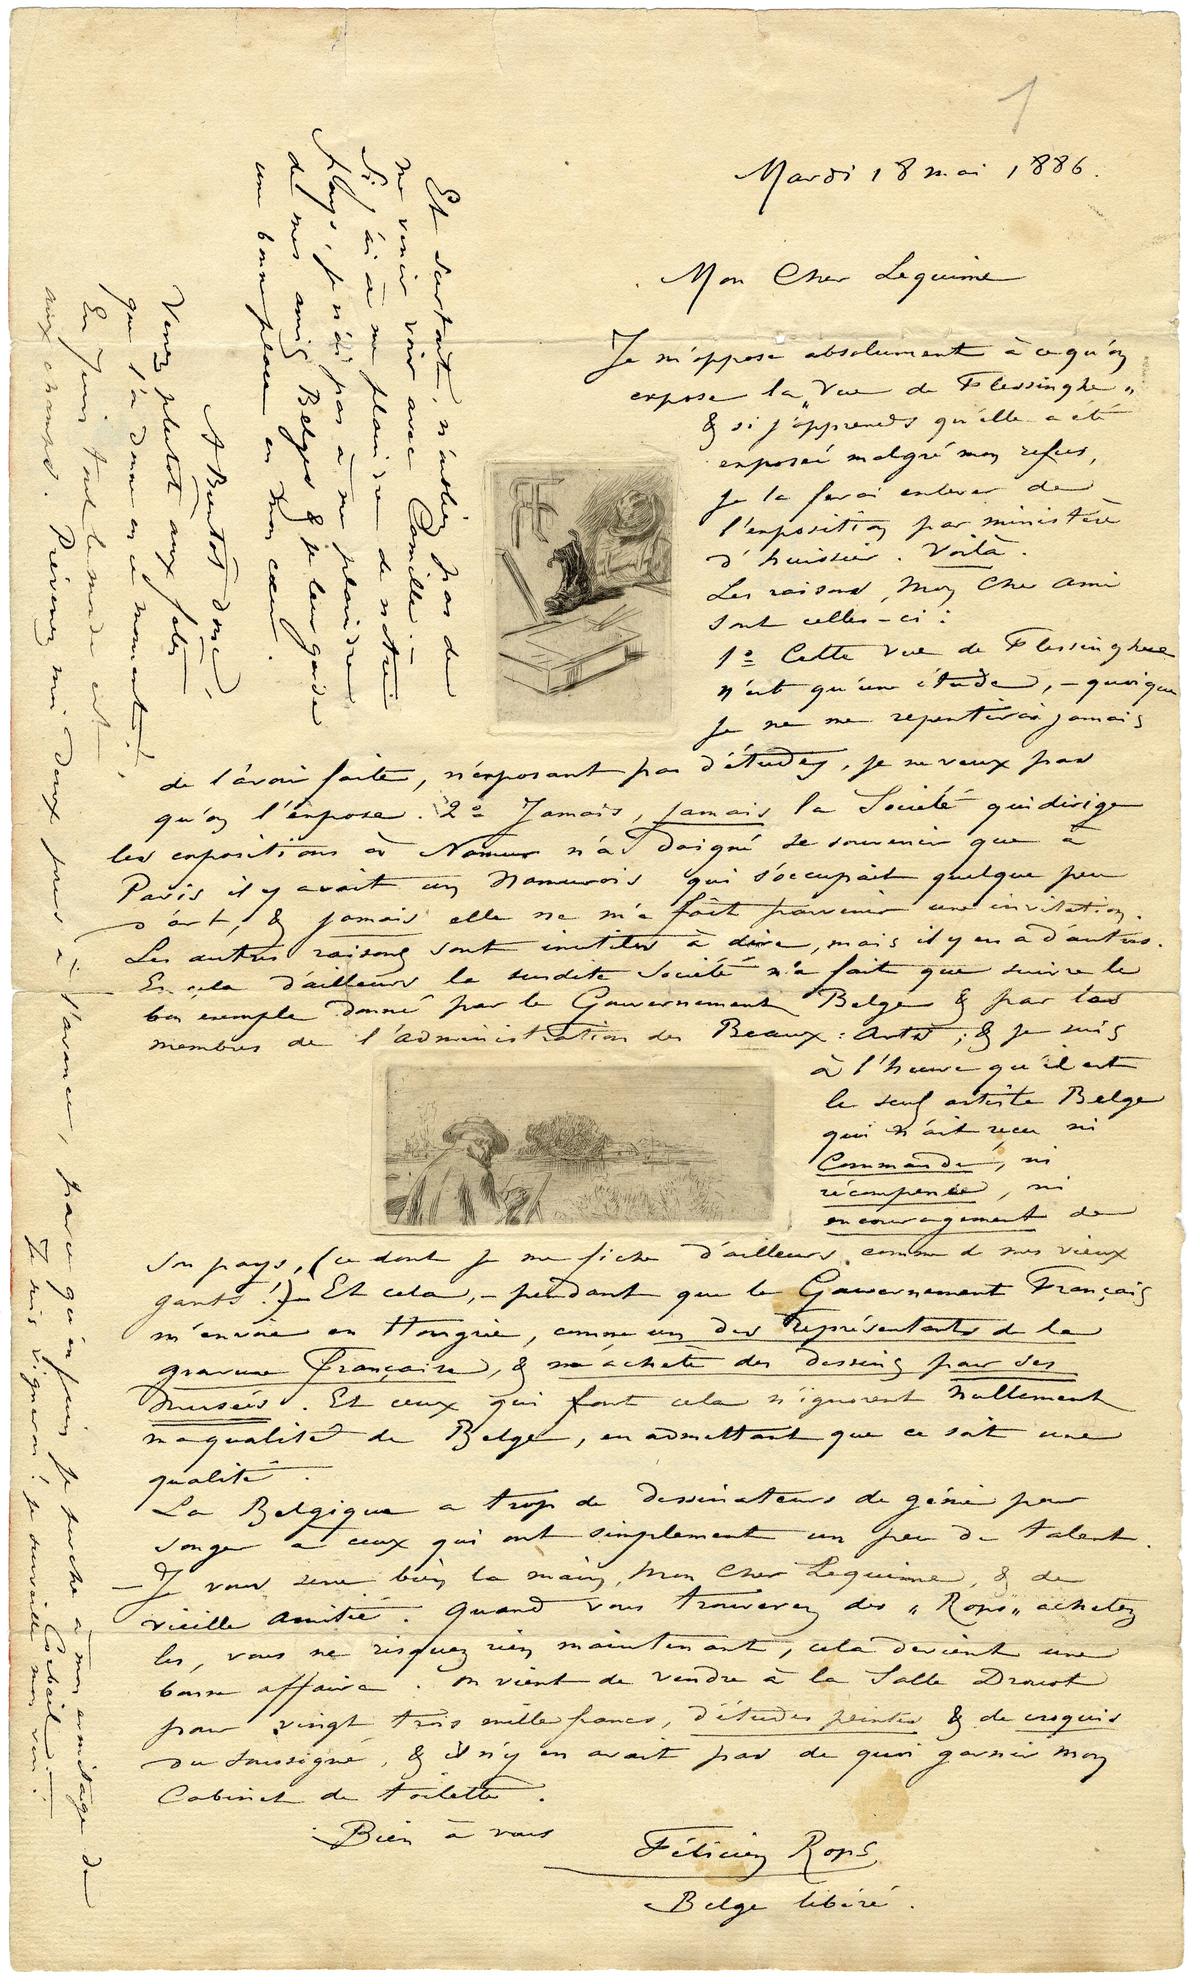 1
Mardi 18 mai 1886.
Mon Cher Lequime
Je m'oppose absolument à ce qu'on
expose la "Vue de Flessinghe"
& si j'apprends qu'elle a été
exposée malgré mon refus,
je la ferai enlever de
l'exposition par ministère
d'huissier. Voilà.
Les raisons, Mon Cher Ami
sont celles-ci :
1º Cette vue de Flessinghe
n'est qu'une étude, – quoique
je ne me repentirai jamais
de l'avoir faite, n'exposant pas d'études, je ne veux pas
qu'on l'expose. 2º Jamais, jamais la Société qui dirige
les expositions à Namur n'a daigné se souvenir que à
Paris il y avait un Namurois qui s'occupait quelque peu
d'art, & jamais elle ne m'a fait parvenir une invitation.
Les autres raisons sont inutiles à dire, mais il y en a d'autres.
En cela d'ailleurs la susdite Société n'a fait que suivre le
bon exemple donné par le Gouvernement Belge & par les
membres de l'administration des Beaux-Arts ; & je suis
à l'heure qu'il est
le seul artiste Belge
qui n'ait reçu ni
commande, ni
récompense, ni
encouragement de
son pays, (ce dont je me fiche d'ailleurs comme de mes vieux
gants !) – Et cela, – pendant que le Gouvernement Français
m'envoie en Hongrie, comme un des représentants de la
gravure française, & m'achète des dessins pour ses
Musées. Et ceux qui font cela n'ignorent nullement
ma qualité de Belge, en admettant que ce soit une
qualité.
La Belgique a trop de dessinateurs de génie pour
songer à ceux qui ont simplement un peu de talent.
– Je vous serre bien la main, Mon Cher Lequime, & de
vieille amitié. Quand vous trouverez des "Rops" achetez
les, vous ne risquez rien maintenant, cela devient une
bonne affaire. On vient de vendre à la Salle Drouot
pour vingt trois mille francs, d'études peintes & de croquis
du soussigné, & il n'y en avait pas de quoi garnir mon
Cabinet de toilette.
Bien à vous
Félicien Rops
Belge libéré.
Et surtout, n'oubliez pas de
me venir voir avec Camille. –
Si j'ai à me plaindre de notre
Pays, je n'ai pas à me plaindre
de mes amis Belges & je leur garde
une bonne place en mon cœur.
A Bientôt donc,
Venez plutôt aux fêtes
que l'on donne en ce moment !,
En Juin tout le monde est
aux champs. Prévenez moi deux jours à l'avance, parce qu'en juin je perche à mon ermitage de
Corbeil. –
Je suis vigneron ! je surveille mon vin !